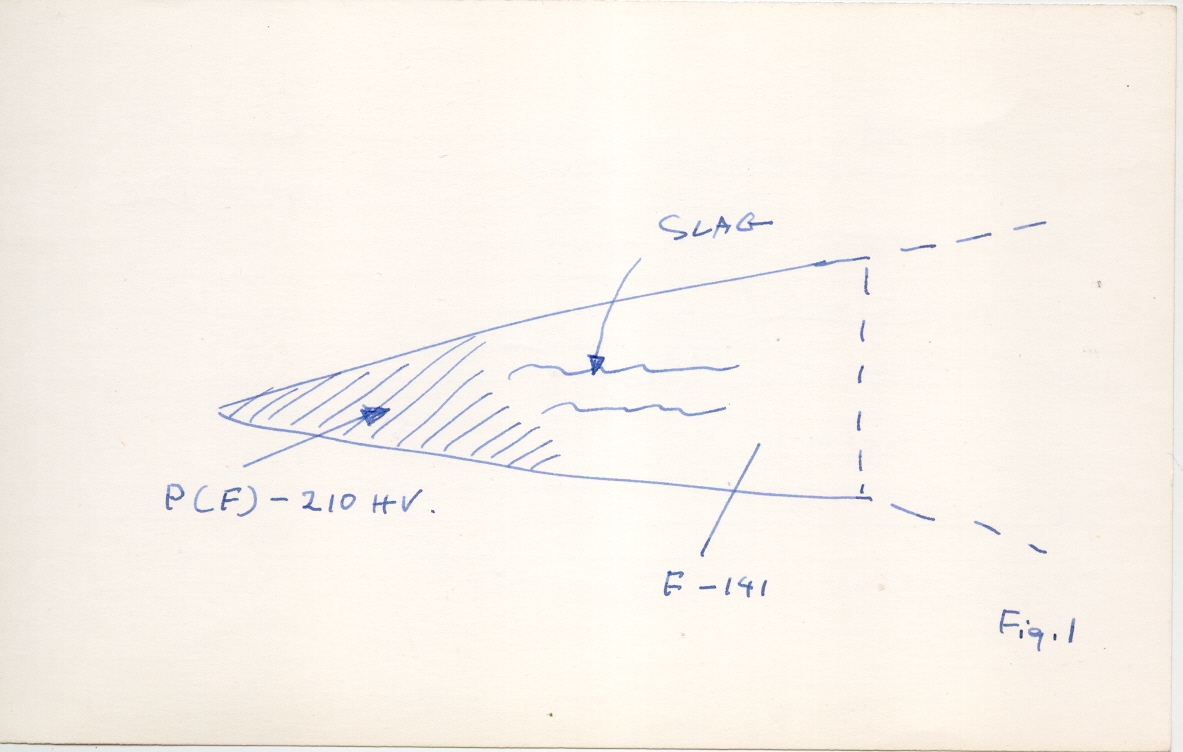 SLAG
P(F)-210 HV.
F-141
Fig.1